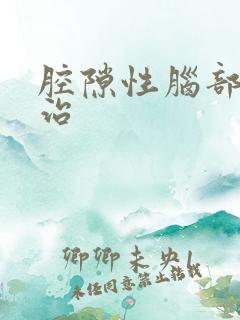 腔隙性腦部
治
卿卿未央
未经同意禁止转载